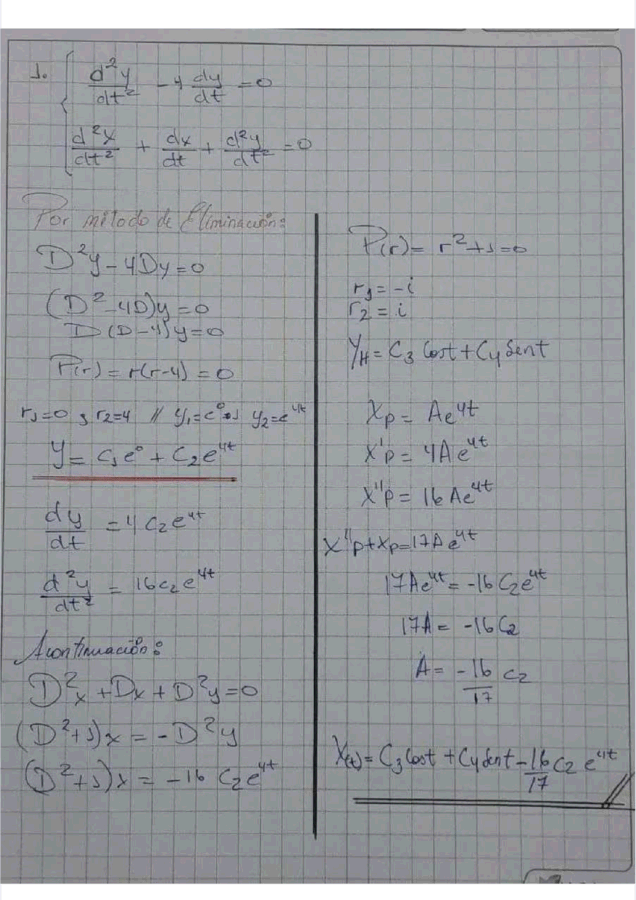 1. { d²y/dt² - 4 dy/dt = 0
d²x/dt² + dx/dt + d²y/dt² = 0
Por método de Eliminación:
D²y - 4Dy = 0
(D² - 4D)y = 0
D(D-4)y = 0
P(r) = r(r-4) = 0
r1=0 ; r2=4 // y1=e⁰=1 y2=e^4t
y = c1e⁰ + c2e^4t
dy/dt = 4c2e^4t
d²y/dt² = 16c2e^4t
Acontinuación:
D²x + Dx + D²y = 0
(D²+1)x = -D²y
(D²+1)x = -16 C2e^4t
P(r) = r²+1=0
r1 = -i
r2 = i
YH = C3 Cost + C4 Sent
Xp = Ae^4t
X'p = 4Ae^4t
X''p = 16Ae^4t
X''p+Xp=17Ae^4t
17Ae^4t = -16C2e^4t
17A = -16C2
A = -16/17 C2
X(t) = C3Cost + C4Sent - 16/17 C2 e^4t